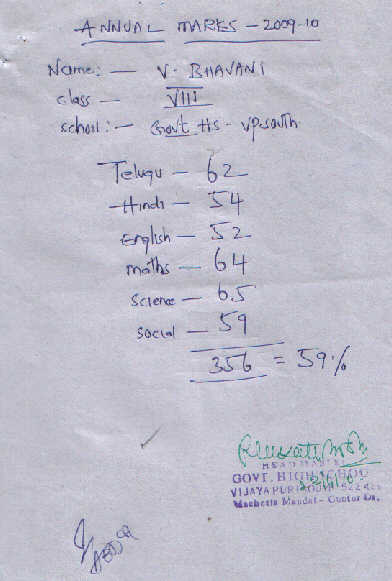 ANNUAL MARKS - 2009-10
Name: - V. BHAVANI
class - VIII
school: - Govt HS - VP south
Telugu - 62
Hindi - 54
English - 52
maths - 64
Science - 65
Social - 59
356 = 59%
GOVT. HIGH SCHOOL
VIJAYAPURI SOUTH
Macherla Mandal - Guntur Dt.